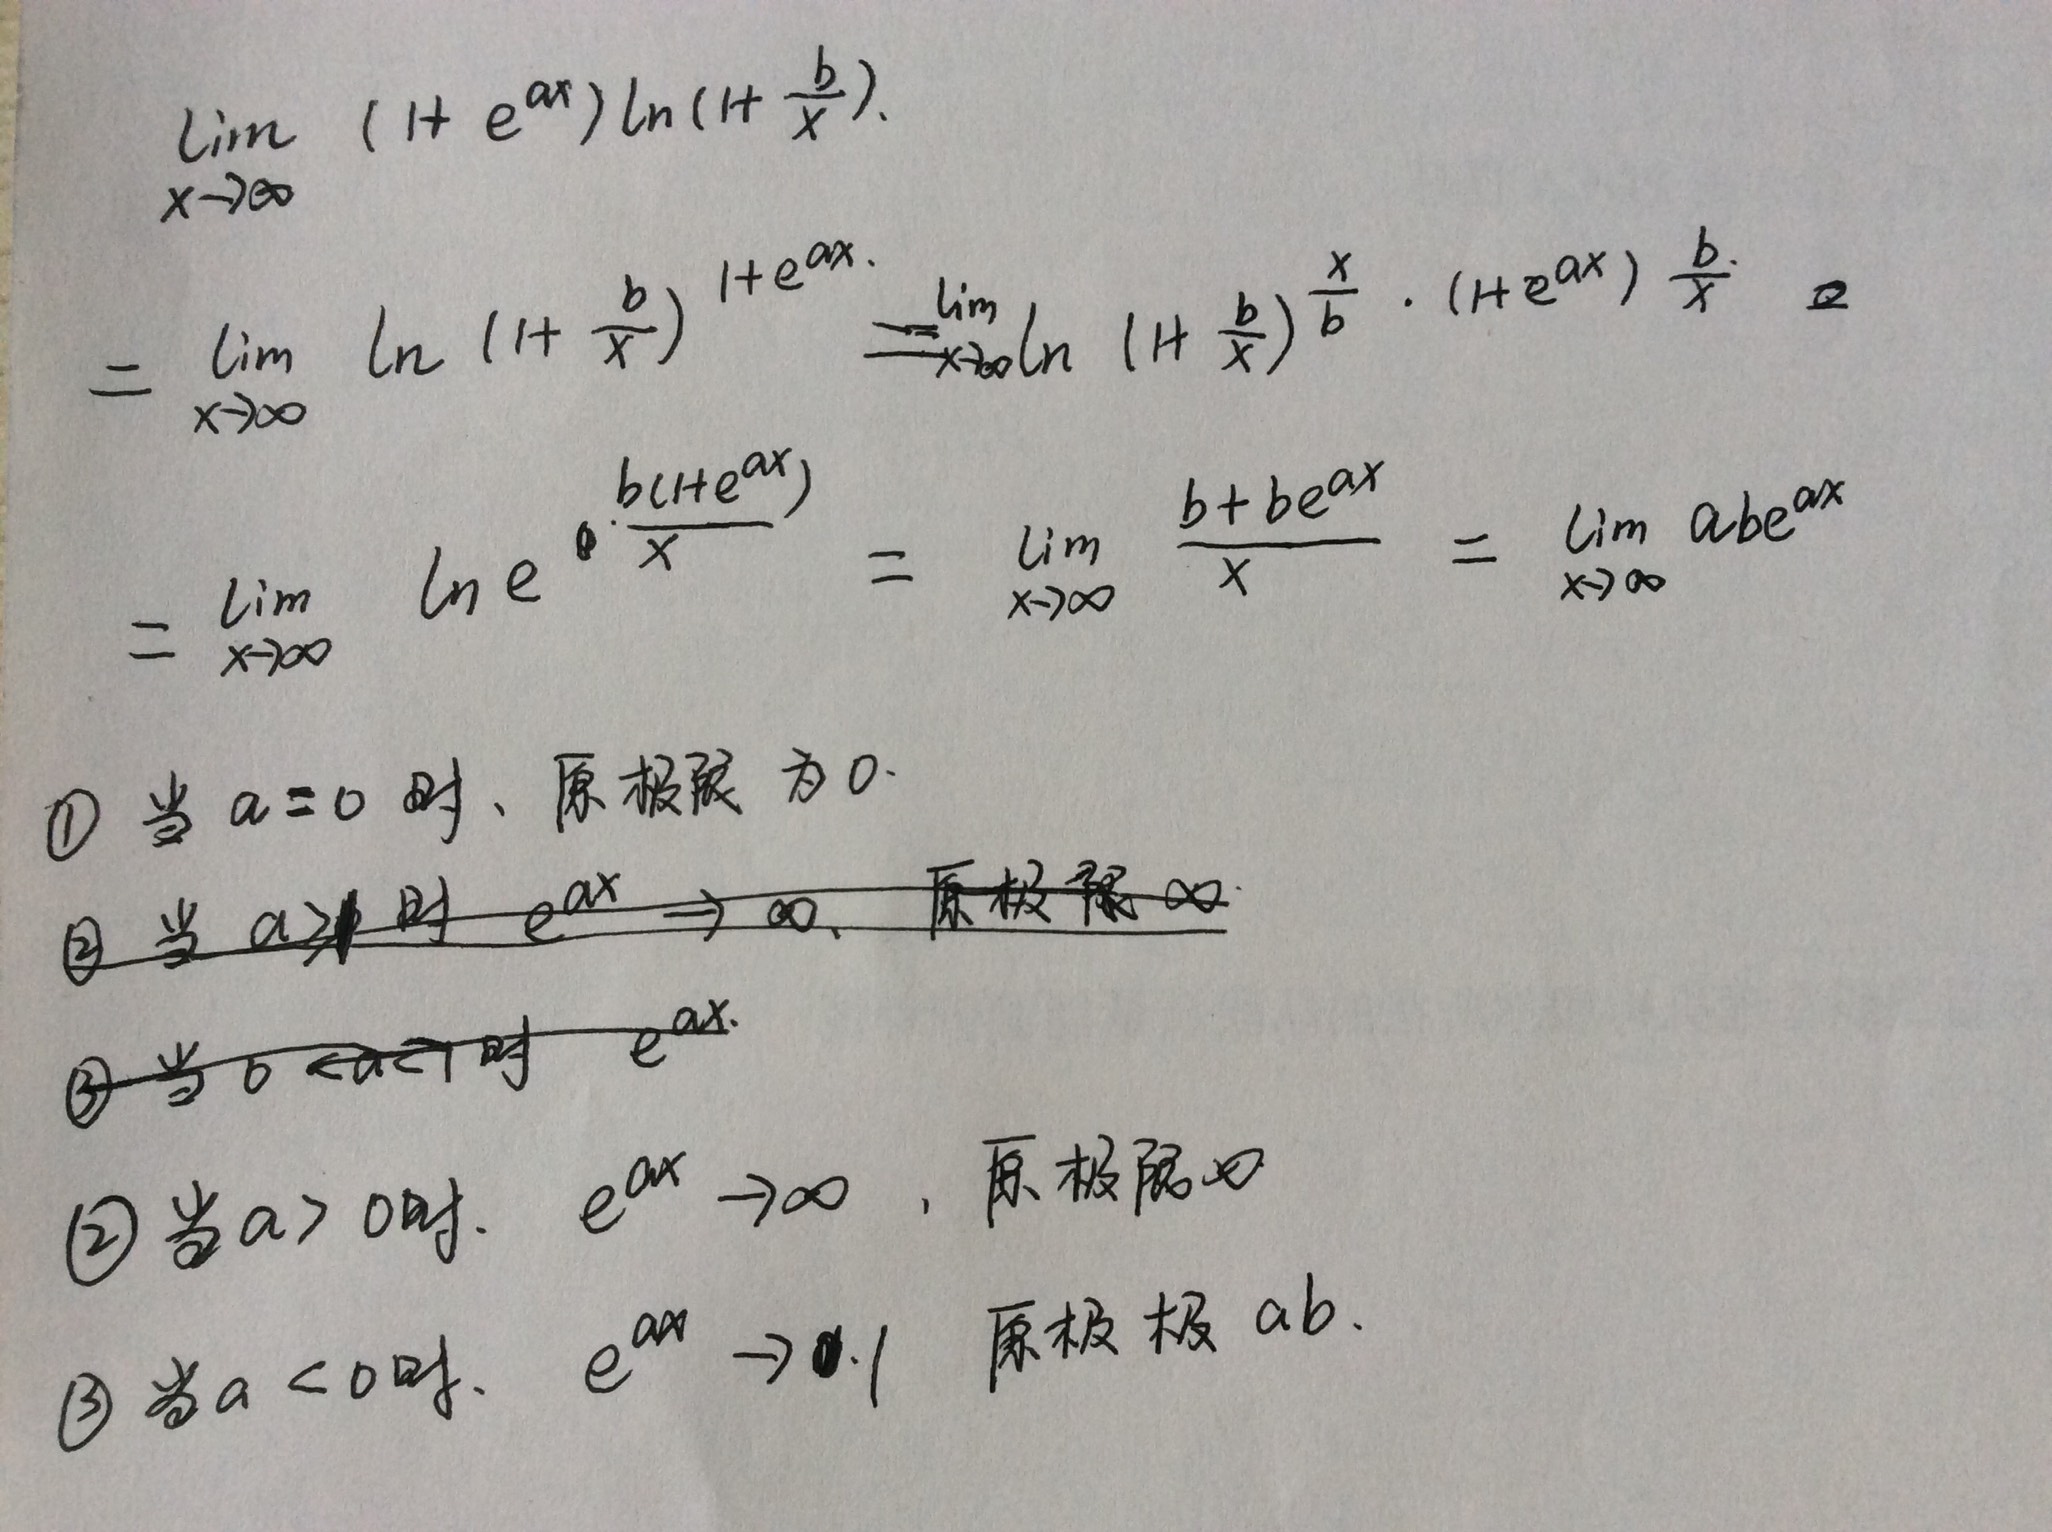 lim (1+e^{ax}) ln(1+\frac{b}{x}).
x→∞
= lim ln (1+\frac{b}{x})^{1+e^{ax}}. = lim ln (1+\frac{b}{x})^{\frac{x}{b}·(1+e^{ax})\frac{b}{x}} =
x→∞ x→∞
= lim ln e^{\frac{b(1+e^{ax})}{x}} = lim \frac{b+be^{ax}}{x} = lim abe^{ax}
x→∞ x→∞ x→∞
① 当 a=0 时、原极限为0.
② 当 a>1 时 e^{ax} → ∞、原极限 ∞.
③ 当 0<a<1 时 e^{ax}.
② 当 a>0时. e^{ax} →∞ 、原极限∞
③ 当 a<0时. e^{ax} → 1 原极极 ab.